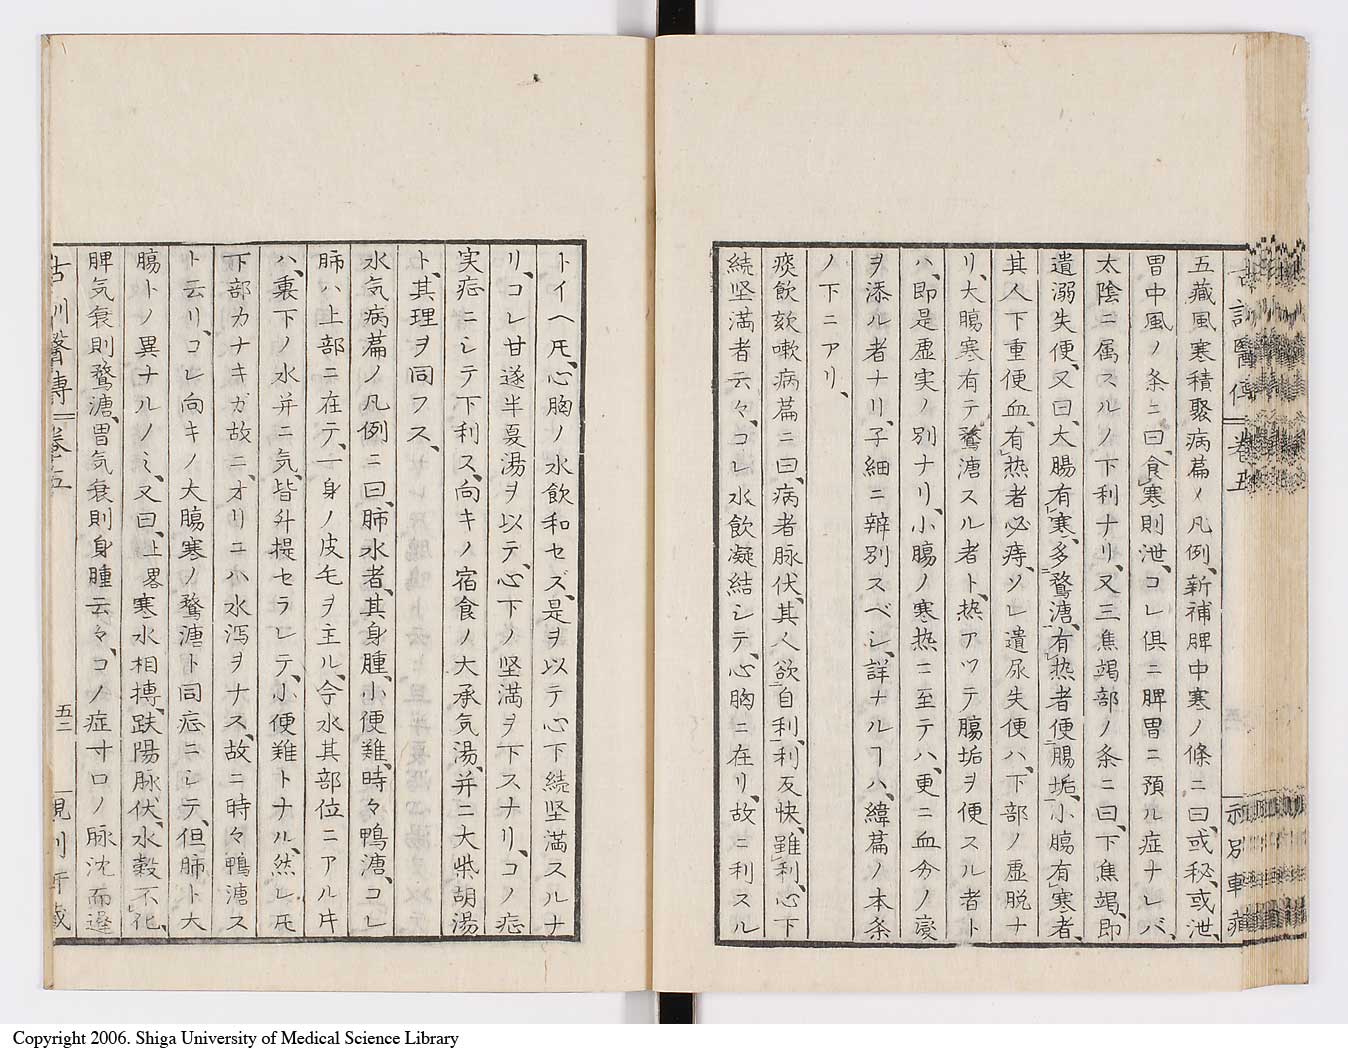 古訓醫傳 卷五
五藏風寒積聚病篇ノ凡例、新補脾中寒ノ條ニ曰、或秘、或泄、
胃中風ノ条ニ曰、食寒則泄、コレ倶ニ脾胃ニ預ル症ナレバ、
太陰ニ属スルノ下利ナリ、又三焦竭部ノ条ニ曰、下焦竭、即
遺溺失便、又曰、大腸有寒、多鶩溏、有热者便腸垢、小腸有寒者、
其人下重便血、有热者必痔、ソレ遺尿失便ハ、下部ノ虚脱ナ
リ、大腸寒有テ鶩溏スル者ト、热アツテ腸垢ヲ便スル者ト
ハ、即是虚実ノ別ナリ、小腸ノ寒热ニ至テハ、更ニ血分ノ
ヲ添ル者ナリ、子細ニ辨別スベシ、詳ナルヿハ、緯篇ノ本条
ノ下ニアリ、
痰飲欬嗽病篇ニ曰、病者脉伏、其人欲自利、利反快、雖利、心下
続坚満者云々、コレ水飲凝結シテ、心胸ニ在リ、故ニ利スル
トイヘ𪜈、心胸ノ水飲和セズ、是ヲ以テ心下続坚満スルナ
リ、コレ甘遂半夏湯ヲ以テ、心下ノ坚満ヲ下スナリ、コノ症
実症ニシテ下利ス、向キノ宿食ノ大承気湯、并ニ大柴胡湯
ト、其理ヲ同フス、
水気病篇ノ凡例ニ曰、肺水者、其身腫、小便難、時々鴨溏、コレ
肺ハ上部ニ在テ、一身ノ皮毛ヲ主ル、今水其部位ニアル片
ハ、裏下ノ水并ニ気、皆外提セラレテ、小便難トナル、然レ𪜈
下部カナキガ故ニ、オリニハ水泻ヲナス、故ニ時々鴨溏ス
ト云リ、コレ向キノ大腸寒ノ鶩溏ト同症ニシテ、但肺ト大
腸トノ異ナルノミ、又曰、上畧寒水相搏、趺陽脉伏、水穀不化、
脾気衰則鶩溏、胃気衰則身腫云々、コノ症寸口ノ脉沈而遲
古訓醫傳 卷五 五二